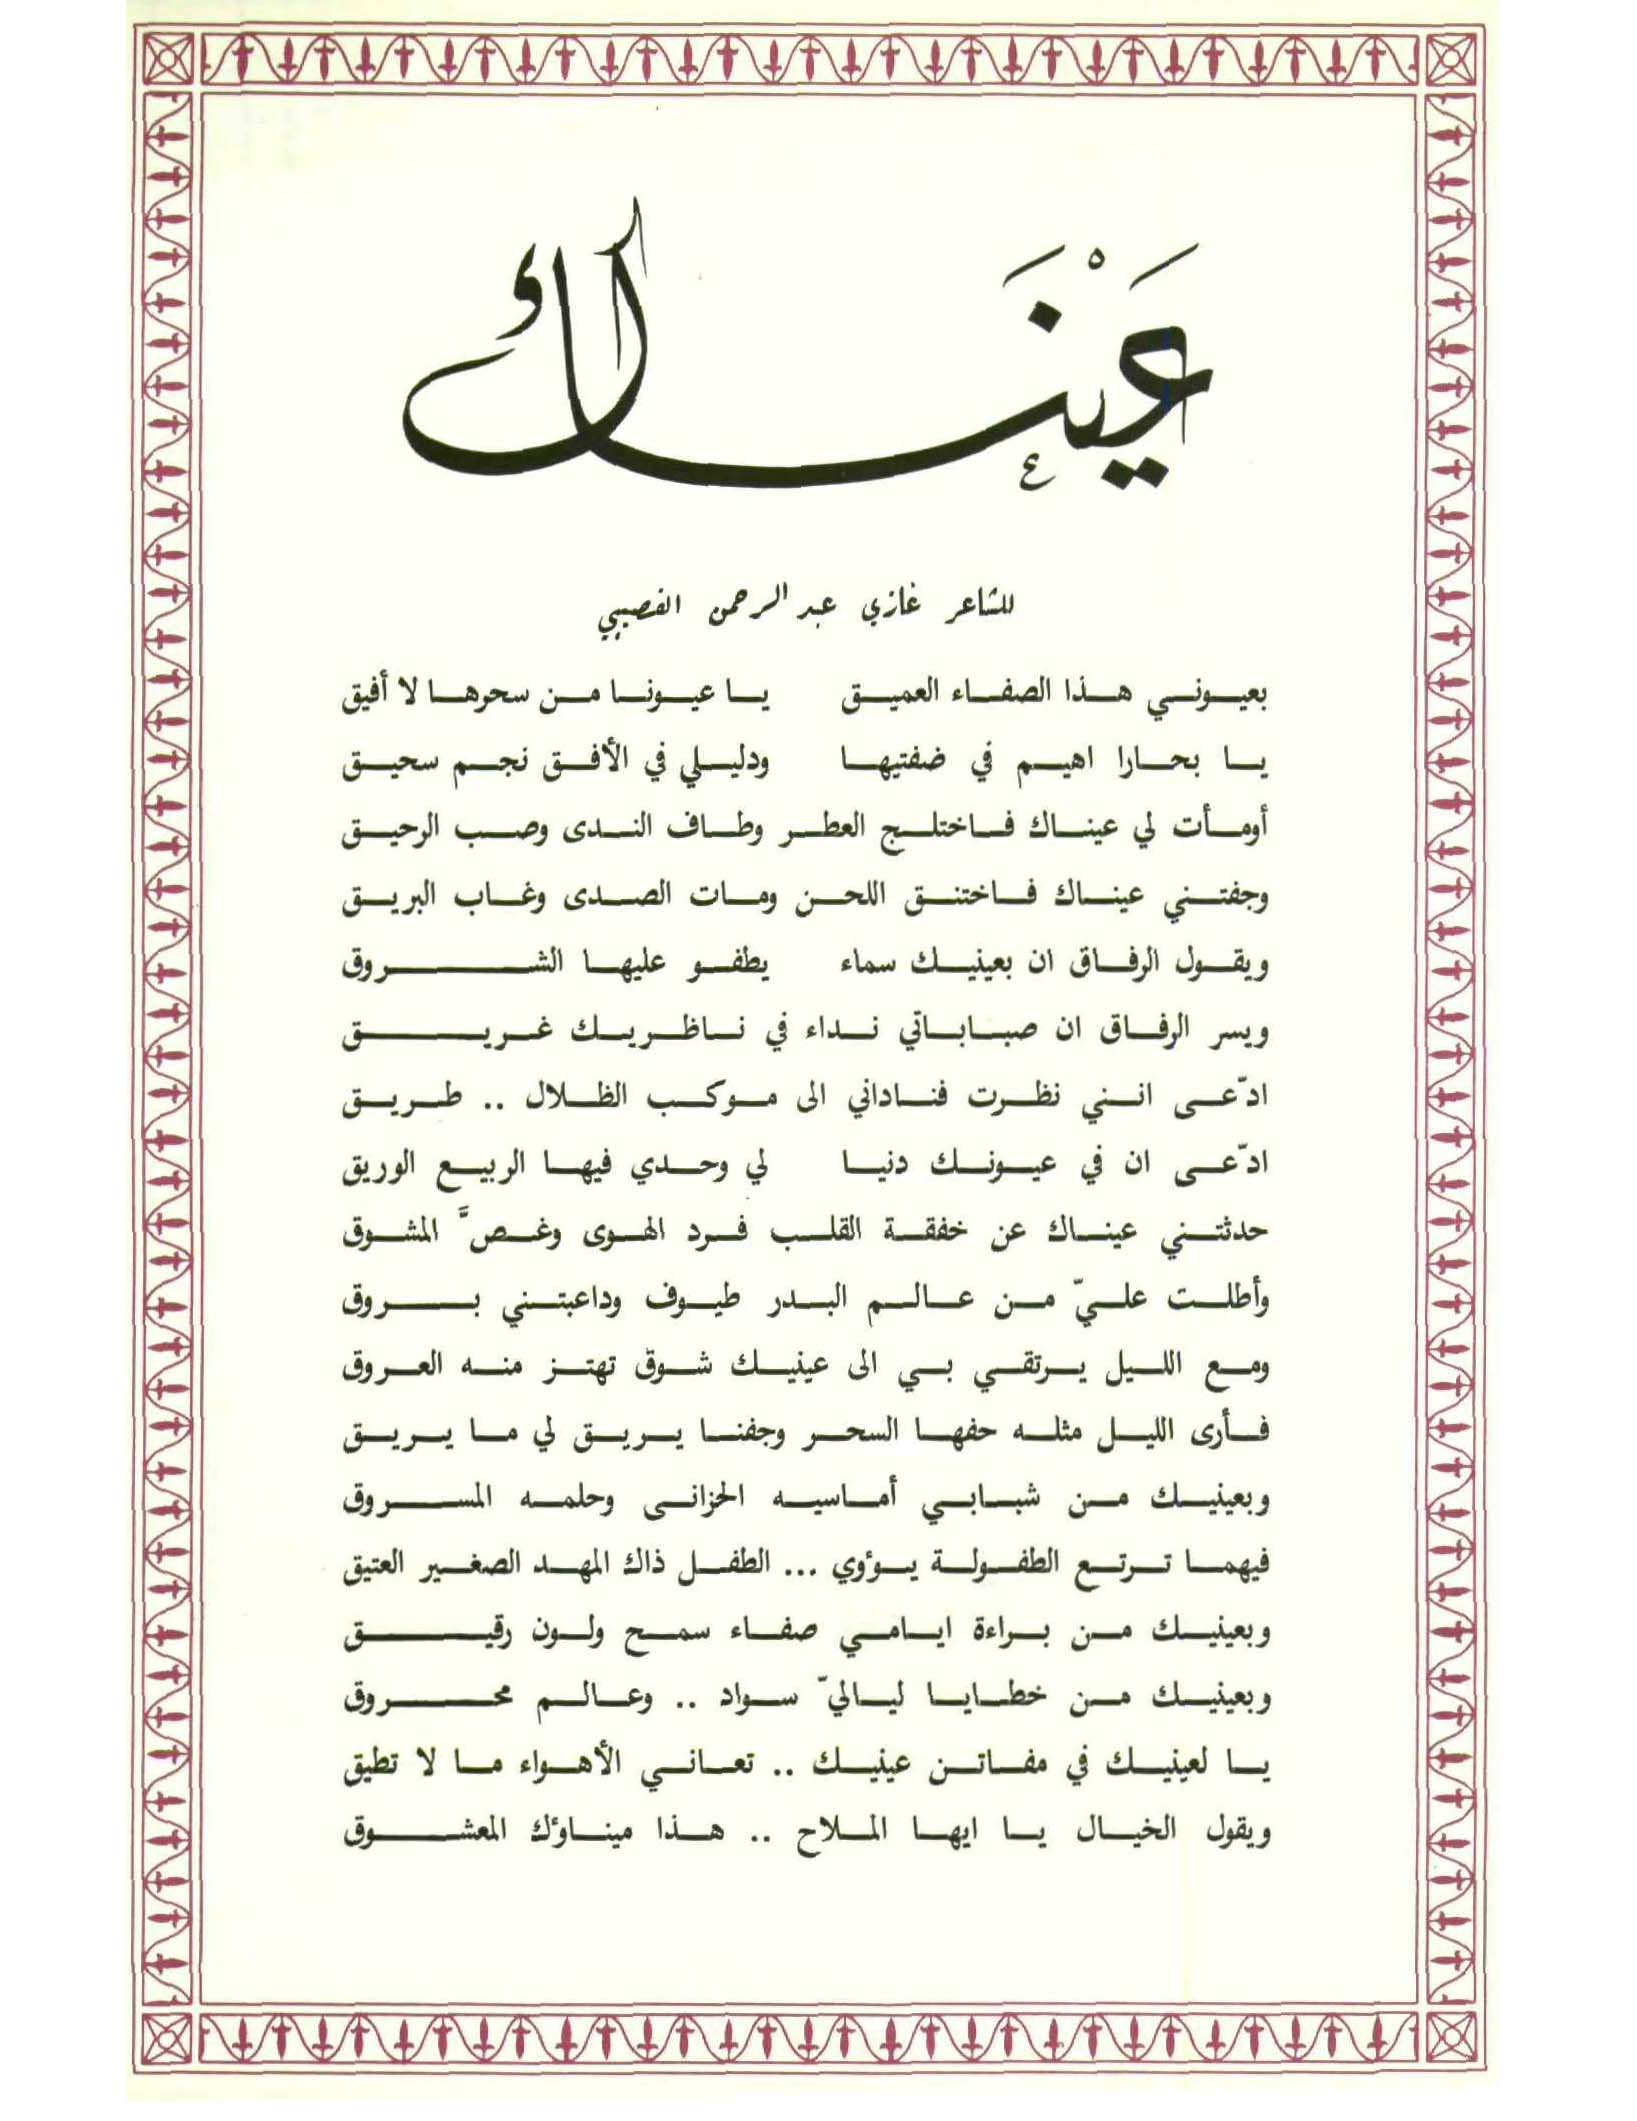 عَيْنَاك
للشاعر غازي عبد الرحمن القصيبي
بعيوني هذا الصفاء العميق يا عيونا من سحرها لا أفيق
يا بحارا اهيم في ضفتيها ودليلي في الأفق نجم سحيق
أومأت لي عيناك فاختلج العطر وطاف الندى وصب الرحيق
وجفتني عيناك فاختنق اللحن ومات الصدى وغاب البريق
ويقول الرفاق ان بعينيك سماء يطفو عليها الشروق
ويسر الرفاق ان صباباتي نداء في ناظريك غريق
ادّعى انني نظرت فناداني الى موكب الظلال .. طريق
ادّعى ان في عيونك دنيا لي وحدي فيها الربيع الوريق
حدثتني عيناك عن خفقة القلب فرد الهوى وغصَّ المشوق
وأطلت عليّ من عالم البدر طيوف وداعبتني بروق
ومع الليل يرتقي بي الى عينيك شوق تهتز منه العروق
فأرى الليل مثله حفها السحر وجفنا يريق لي ما يريق
وبعينيك من شبابي أماسيه الحزانى وحلمه المسروق
فيهما ترتع الطفولة يؤوي ... الطفل ذاك المهد الصغير العتيق
وبعينيك من براءة ايامي صفاء سمح ولون رقيق
وبعينيك من خطايا لياليّ سواد .. وعالم محروق
يا لعينيك في مفاتن عينيك .. تعاني الأهواء ما لا تطيق
ويقول الخيال يا ايها الملاح .. هذا ميناؤك المعشوق